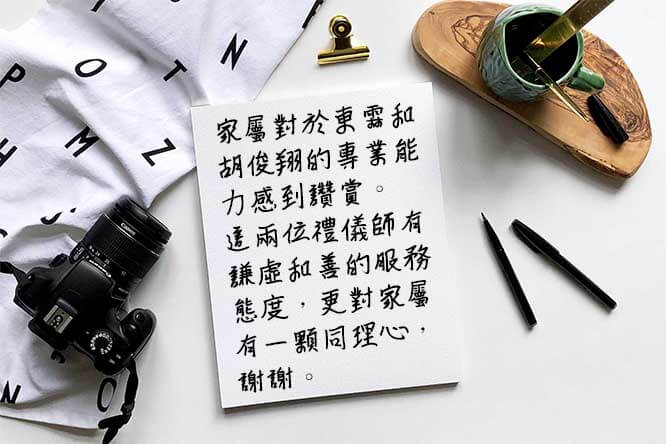 家屬對於東霖和
胡俊翔的專業能
力感到讚賞。
這兩位禮儀師有
謙虛和善的服務
態度，更對家屬
有一顆同理心，
謝謝。
Canon